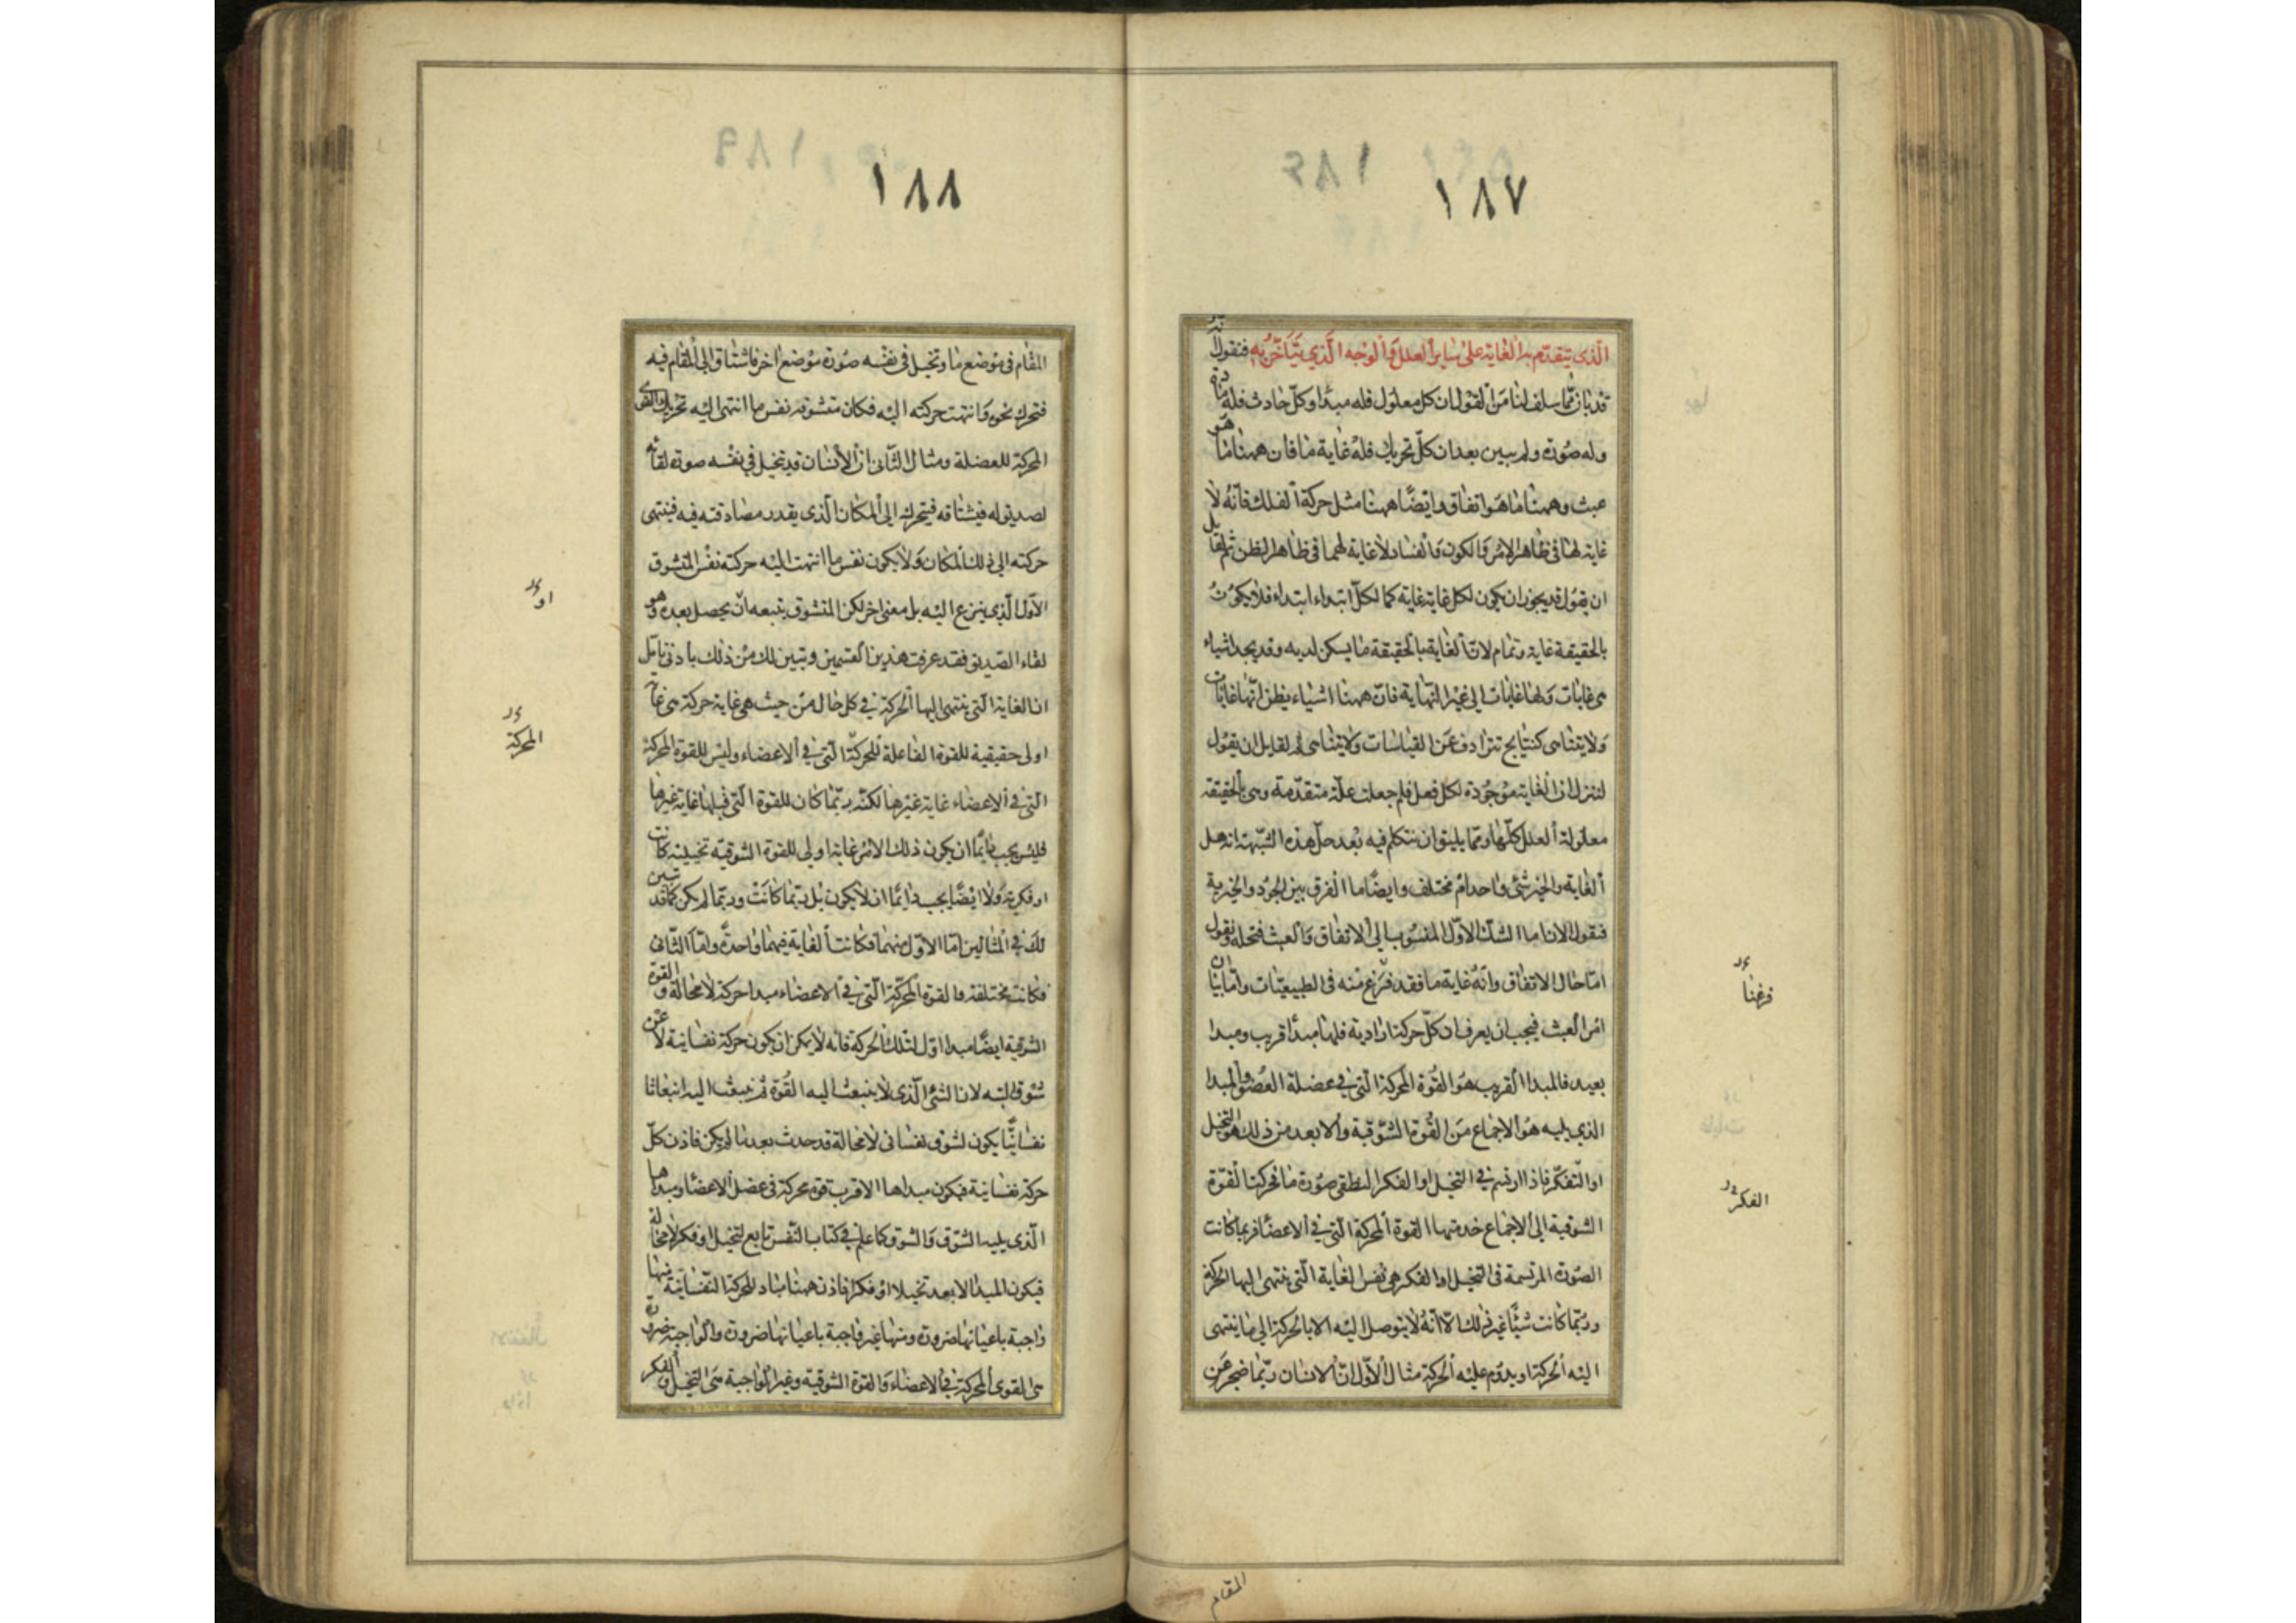 ١٨٧
الذي يتقدم به الغاية على ساير العلل والوجه الذي يتأخر به فنقول انه
قد بان مما سلف لنا من القول ان كل معلول فله مبدأ وكل حادث فله مادة
وله صورة ولم يبين بعد ان كل تحريك فله غاية ما فان ههنا ما هو
عبث وههنا ما هو اتفاق وايضًا ههنا مثل حركة الفلك فانه لا
غاية لها في ظاهر الامر والكون والفساد لا غاية لهما في ظاهر الظن ثم لقايل
ان يقول قد يجوز ان يكون لكل غاية غاية كما لكل ابتداء ابتداء فلا يكون
بالحقيقة غاية وتمام لان الغاية بالحقيقة ما يسكن لديه وقد يجد اشياء
هي غايات ولها غايات الى غير النهاية فان ههنا اشياء يظن انها غايات
ولا يتناهى كنتايج تترادف عن القياسات ولا يتناهى ثم لقايل ان يقول
لننزل ان الغاية موجودة لكل فعل فلم جعلت علة متقدمة وهي بالحقيقة
معلولة العلل كلها ومما يليق ان نتكلم فيه بعد حل هذه الشبهة انه هل
الغاية والخير شئ واحد ام مختلف وايضًا ما الفرق بين الجود والخيرية
فنقول الان اما الشك الاول المنسوب الى الاتفاق والعبث فنحله ونقول
اما حال الاتفاق وانه غاية ما فقد فرغ منه في الطبيعيات واما بيان
امر العبث فيجب ان يعرف ان كل حركة ارادية فلها مبدأ قريب ومبدا
بعيد فالمبدا القريب هو القوة المحركة التي في عضلة العضو والمبدا
الذي يليه هو الاجماع من القوة الشوقية والابعد من ذلك هو التخيل
او التفكر فاذا ارتسم في التخيل او الفكر النطقي صورة ما فحركت القوة
الشوقية الى الاجماع خدمتها القوة المحركة التي في الاعضا فربما كانت
الصورة المرتسمة في التخيل او الفكر هي نفس الغاية التي ينتهى اليها الحركة
وربما كانت شيئًا غير ذلك الا انه لا يتوصل اليه الا بالحركة الى ما ينتهى
اليه الحركة او يدوم عليه الحركة مثال الاول ان الانسان ربما ضجر عن
فرغنا
الفكر
المقام
١٨٨
المقام في موضع ما وتخيل في نفسه صورة موضع اخر فاشتاق الى المقام فيه
فتحرك نحوه وانتهت حركته اليه فكان متشوقه نفس ما انتهى اليه تحريك القوى
المحركة للعضلة ومثال الثاني ان الانسان قد تخيل في نفسه صورة لقائه
لصديق له فيشتاقه فيتحرك الى المكان الذي يقدر مصادفته فيه فينتهى
حركته الى ذلك المكان ولا يكون نفس ما انتهت اليه حركته نفس المتشوق
الاول الذي ينزع اليه بل معنى اخر لكن المتشوق يتبعه ان يحصل بعده وهو
لقاء الصديق فقد عرفت هذين القسمين وتبين لك من ذلك بادنى تامل
ان الغاية التي ينتهى اليها الحركة في كل حال من حيث هي غاية حركة هي غاية
اولى حقيقية للقوة الفاعلة للحركة التي في الاعضاء وليس للقوة المحركة
التي في الاعضاء غاية غيرها لكنه ربما كان للقوة التي قبلها غاية غيرها
فليس يجب دايمًا ان يكون ذلك الامر غاية اولى للقوة الشوقية تخيلية كانت
او فكرية ولا ايضًا يجب دايمًا ان لا يكون بل ربما كانت وربما لم يكن كما قد تبين
لك في المثالين اما الاول منهما فكانت الغاية فيهما واحدة واما الثاني
فكانت مختلفة والقوة المحركة التي في الاعضاء مبدا حركة لا محالة والقوة
الشوقية ايضًا مبدا اول لتلك الحركة فانه لا يمكن ان يكون حركة نفسانية لا عن
شوق البته لان الشئ الذي لا ينبعث اليه القوة ثم ينبعث اليه انبعاثا
نفسانيًّا يكون لشوق نفساني لا محالة قد حدث بعد ما لم يكن فاذن كل
حركة نفسانية فيكون مبداها الاقرب قوة محركة في عضل الاعضا ومبداها
الذي يليه الشوق والشوق كما علم في كتاب النفس تابع لتخيل او فكر لا محالة
فيكون المبدا الابعد تخيلا او فكرا فاذن ههنا مباد للحركة النفسانية منها
واجبة باعيانها ضرورة ومنها غير واجبة باعيانها ضرورة والواجبة ضرورة
هي القوى المحركة في الاعضاء والقوة الشوقية وغير الواجبة هي التخيل والفكر
او
المحركة